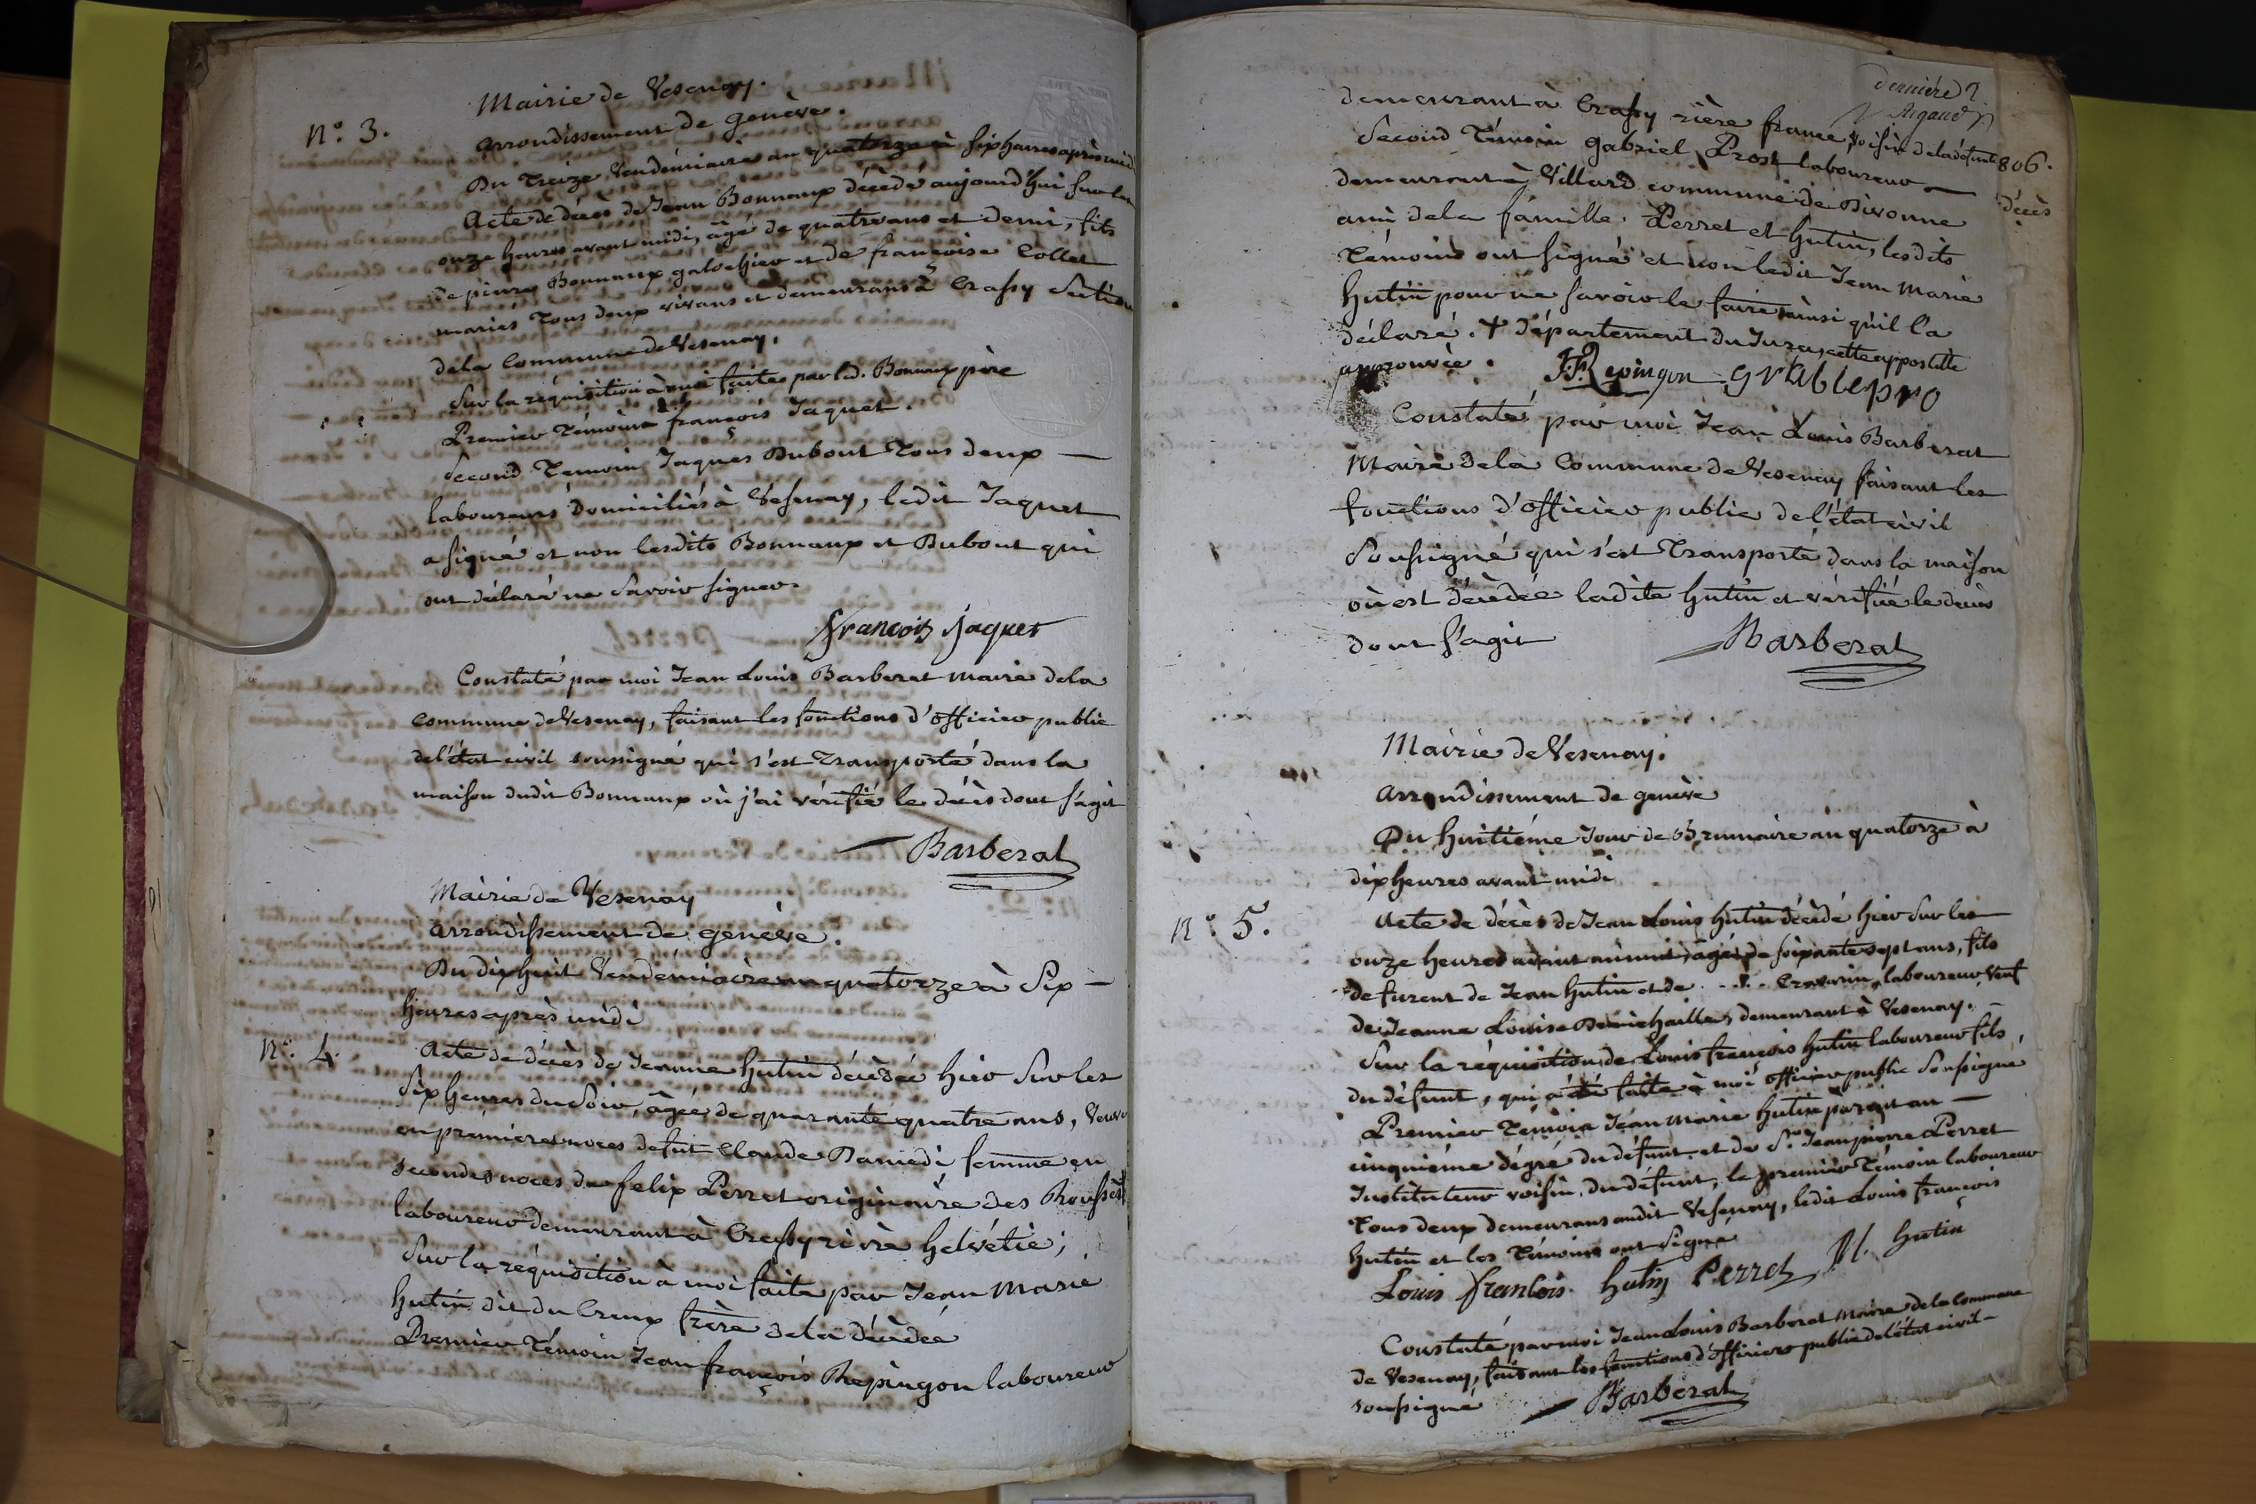 Mairie de Vesenay.
N.° 3.
arrondissement de genève.
Du Treize Vendémiaire an quatorze à six heures après midi
Acte de décès de Jean Bonnaux décédé aujourd'hui sur les
onze heures avant midi, âgé de quatre ans et demi, fils
de pierre Bonnaux galochier et de françoise Collet
mariés tous deux vivans et demeurans à Crassy section
de la Commune de Vesenay.
Sur la réquisition à moi faite par led. Bonnaux père
Premier Témoin françois Jaquet.
Second Témoin Jaques Dubout Tous deux —
laboureurs Domiciliés à Vesenay, ledit Jaquet
a signé et non lesdits Bonnaux et Dubout qui
ont déclaré ne savoir signer.
François Jaquet
Constaté par moi Jean Louis Barberat maire dela
commune de Vesenay, faisant les fonctions d'officier public
del'état civil soussigné qui s'est Transporté dans la
maison dudit Bonnaux où j'ai vérifié le décès dont s'agit
Barberat
Mairie de Vesenay
arrondissement de genève.
Du dix huit Vendémiaire an quatorze à Six —
heures après midi
N.° 4.
Acte de décès de Jeanne hutin décédée hier Sur les
Six heures du Soir, âgée de quarante quatre ans, Veuve
en premières noces de fut Claude Damedi femme en
secondes noces de felix Perret originaire des Rousses +
laboureur demeurant à Crassy rière helvétie;
Sur la réquisition à moi faite par Jean Marie
hutin dit du Creux frère de la décédée
Premier Témoin Jean françois Repingon laboureur
dernière
Rigaud
demeurant à Crassy rière france voisin de la défunte
806.
décès
Second Témoin gabriel Prost laboureur —
demeurant à Villard commune de Divonne
ami dela famille. Perret et hutin, lesdits
Témoins ont signé et non ledit Jean Marie
hutin pour ne savoir le faire ainsi qu'il l'a
déclaré. + département du Jura, cette appostille
approuvée. JF Repingon g r able pro
Constaté par moi Jean Louis Barberat
Maire dela Commune de Vesenay faisant les
fonctions d'officier public de l'état civil
Soussigné qui s'est Transporté dans la maison
où est décédée ladite hutin et vérifié le décès
dont s'agit Barberat
Mairie de Vesenay.
arrondissement de genève
Du huitième Jour de Brumaire an quatorze à
dix heures avant midi
N.° 5.
Acte de décès de Jean Louis hutin décédé hier Sur les
onze heures avant minuit, âgé de soixante sept ans, fils
de furent de Jean hutin et de . . . . Cravarin, laboureur, Veuf
de Jeanne Louise demeurant à Vesenay.
Sur la réquisition de Louis françois hutin laboureur fils
du défunt, qui a été faite à moi officier public Soussigné
Premier Témoin Jean Marie hutin parent au —
cinquième dégré du défunt et de S.r Jean pierre Perret
Instituteur voisin du défunt, le premier Témoin laboureur
Tous deux demeurans audit Vesenay, ledit Louis françois
hutin et les Témoins ont Signé
Louis francois hutin Perret M. hutin
Constaté par moi Jean Louis Barberat Maire de la Commune
de Vesenay, faisant les fonctions d'officier public de l'état civil —
soussigné Barberat